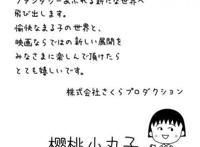 ファンタジーあふれる新たな世界へ
飛び出します。
愉快なまる子の世界と、
映画ならではの新しい展開を
みなさまに楽しんで頂けたら
とても嬉しいです。
株式会社さくらプロダクション
櫻桃小丸子